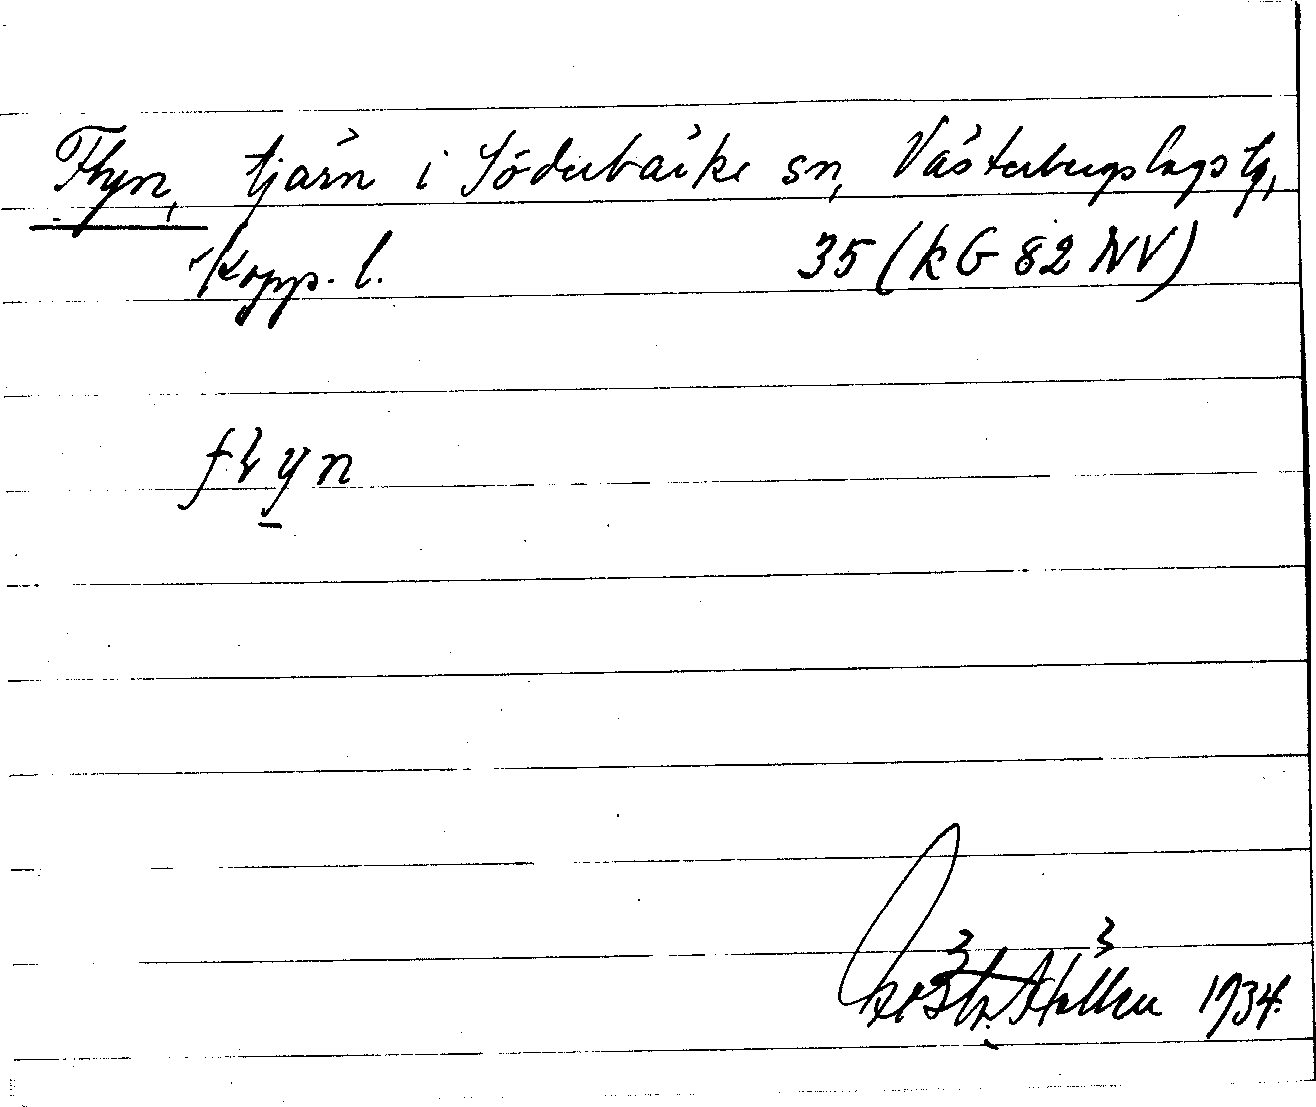 Flyn, tjärn i Söderbärke sn, Västerbergslags tg,
Kopp. l. 35 (kG 82 NV)
flyn
Gösta Hallén 1934.